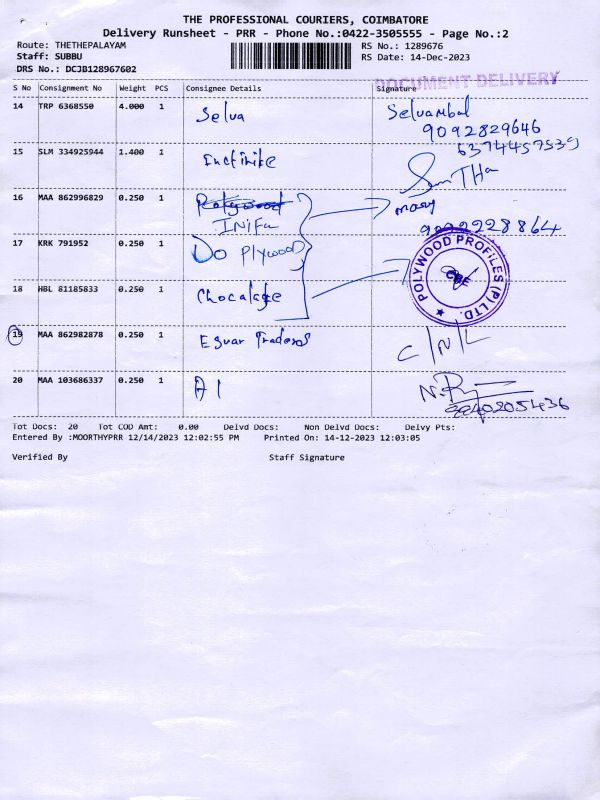 THE PROFESSIONAL COURIERS, COIMBATORE
Delivery Runsheet - PRR - Phone No.:0422-3505555 - Page No.:2
Route: THETHEPALAYAM RS No.: 1289676
Staff: SUBBU RS Date: 14-Dec-2023
DRS No.: DCJB128967602
DOCUMENT DELIVERY
S No Consignment No Weight PCS Consignee Details Signature
14 TRP 6368550 4.000 1 Selva Selvambal
9092829646
6374457539
15 SLM 334925944 1.400 1
16 MAA 862996829 0.250 1 Polywood mary
INiFa 28864
17 KRK 791952 0.250 1 Do Plywood
POLYWOOD PROFILES (P) LTD. ★
CBE
18 HBL 81185833 0.250 1 Chocalate
19 MAA 862982878 0.250 1 Eswar Traders C/N/L
20 MAA 103686337 0.250 1 A1
Tot Docs: 20 Tot COD Amt: 0.00 Delvd Docs: Non Delvd Docs: Delvy Pts:
Entered By :MOORTHYPRR 12/14/2023 12:02:55 PM Printed On: 14-12-2023 12:03:05
Verified By Staff Signature